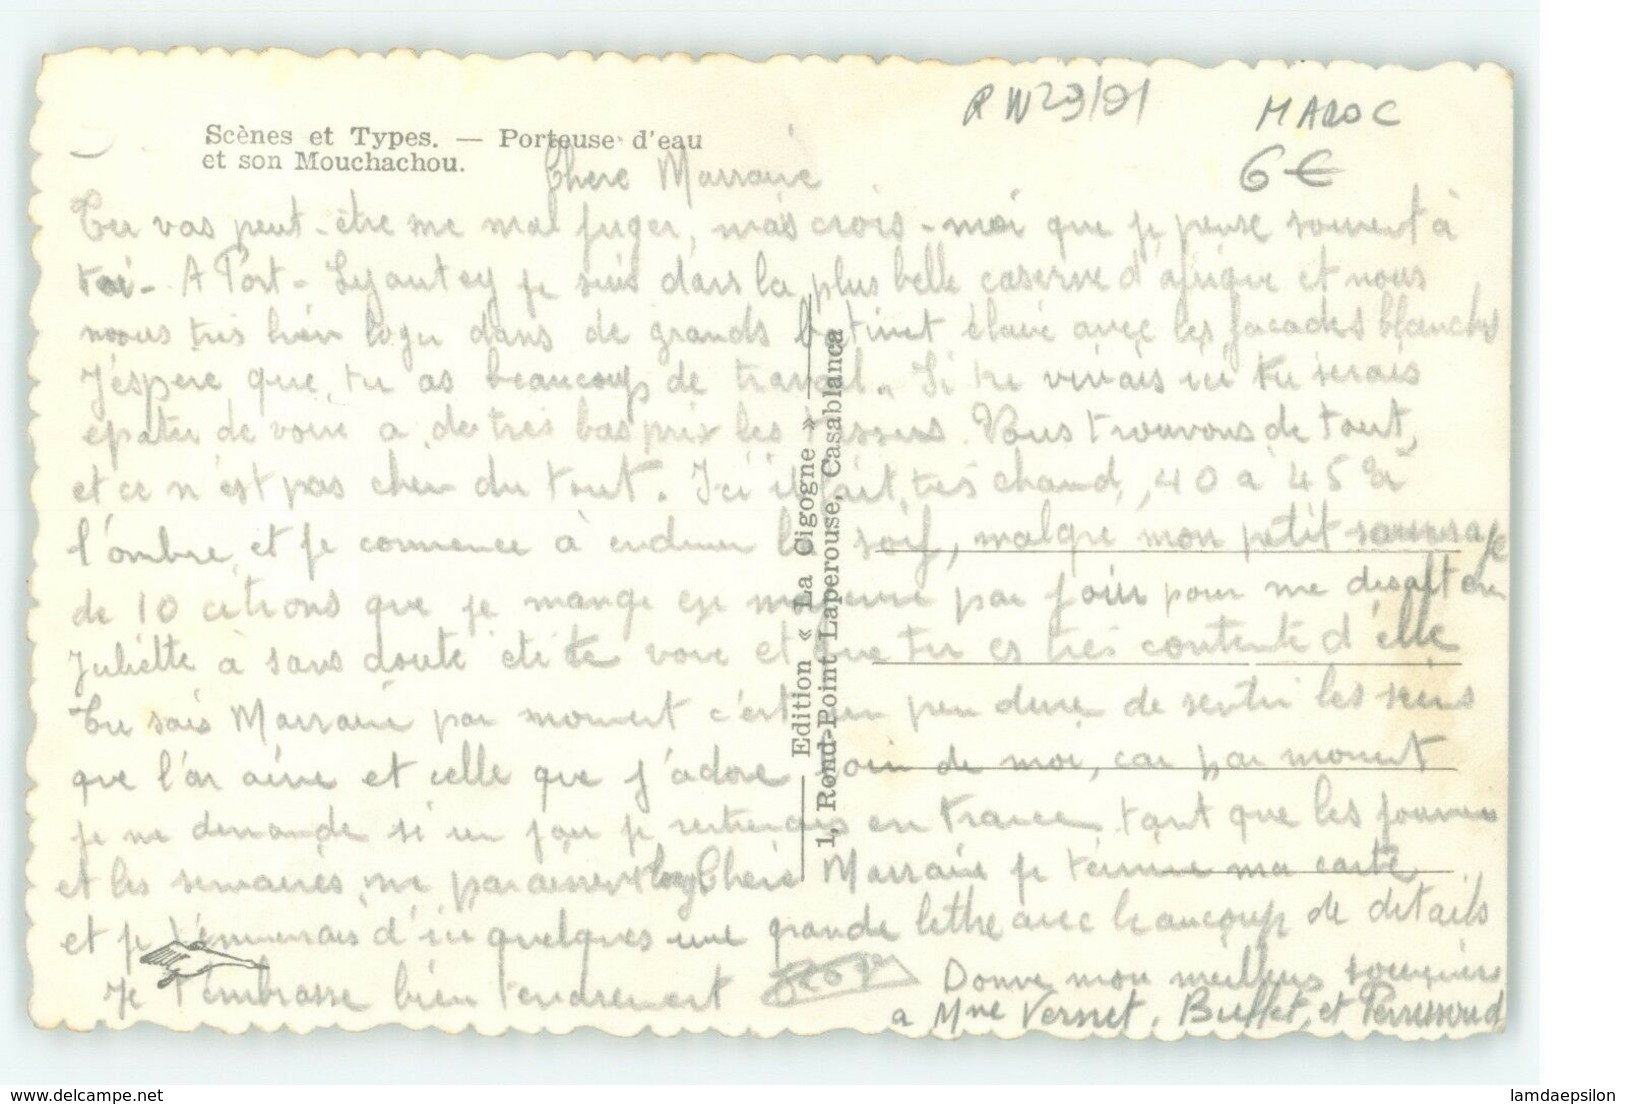 R W29/91
MAROC
6€
Scènes et Types. — Porteuse d'eau
et son Mouchachou.
Chere Marraine
Tu vas peut-être me mal juger, mais crois-moi que je pense souvent à
toi - A Port-Lyautey je suis dans la plus belle caserne d'afrique et nous
nous très bien loger dans de grands batiment élairé avec les facades blanches
J'éspere que tu as beaucoup de travail. Si tu vivais ici tu serais
épater de voir a de tres bas prix les tissus. Nous trouvons de tout,
et ce n'est pas cher du tout. Ici il fait très chaud, 40 à 45° à
l'ombre, et je commence à endurer la soif, malgré mon petit
de 10 citrons que je mange en moyenne par jour pour me desalterer
Juliette à sans doute été te voir et que tu es très contente d'elle
Tu sais Marraine par moment c'est un peu dure de sentir les siens
que l'on aime et celle que j'adore loin de moi, car par moment
je me demande si un jour je rentrerais en France tant que les journees
et les semaines me paraissent long Chere Marraine je termine ma carte
et je t'enverrais d'ici quelques une grande lettre avec beaucoup de détails
Je t'embrasse bien tendrement
Donne mon meilleurs souvenirs
a Mme Vernet, Buffet, et
Edition « La Cigogne »
1, Rond-Point Laperouse, Casablanca
lamdaepsilon
www.delcampe.net